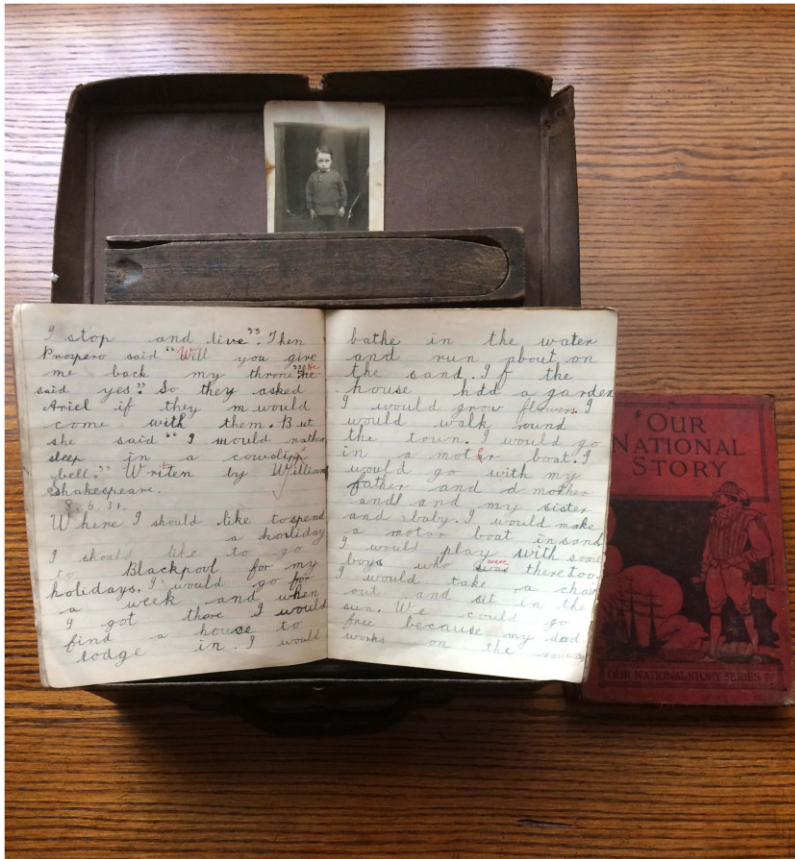 I stop and live". Then
Prospero said "Will you give
me back my throne" he
said yes". So they asked
Ariel if they m would
come with them. But
she said "I would rather
sleep in a cowslips
bell." Writen by William
Shakespeare.
8. 6. 31.
Where I should like to spend
a holiday
I should like to go
to Blackpool for my
holidays. I would go for
a week and when
I got there I would
find a house to
lodge in. I would
bathe in the water
and run about on
the sand. If the
house had a garden
I would grow flowers. I
would walk round
the town. I would go
in a moter boat. I
would go with my
father and d mother
and and my sister
and baby. I would make
a motor boat in sand
I would play with some
boys who were there too.
I would take a chair
out and sit in the
sun. We could go
free because my dad
works on the
OUR
NATIONAL
STORY
OUR NATIONAL STORY SERIES IV